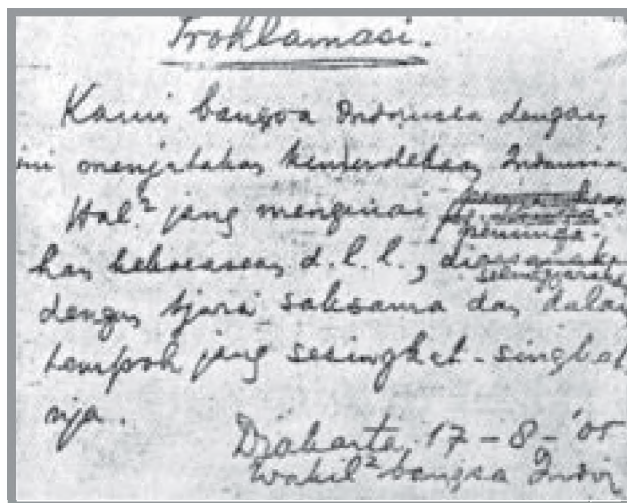 Proklamasi.
Kami bangsa Indonesia dengan
ini menjatakan kemerdekaan Indonesia.
Hal² jang mengenai
peminda-
han kekoeasaan d.l.l.,
dengan tjara saksama dan dalam
tempoh jang sesingkat-singkat
nja.
Djakarta 17 - 8 - '05
Wakil² bangsa Indon